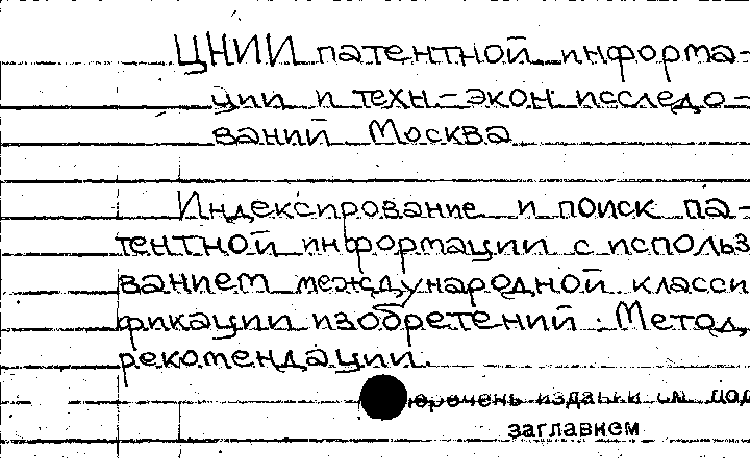 ЦНИИ патентной информа-
ции и техн.-экон. исследо-
ваний Москва
Индексирование и поиск па-
тентной информации с использ
ванием международной класси
фикации изобретений: Метод,
рекомендации.
перечень издания см. под
заглавием